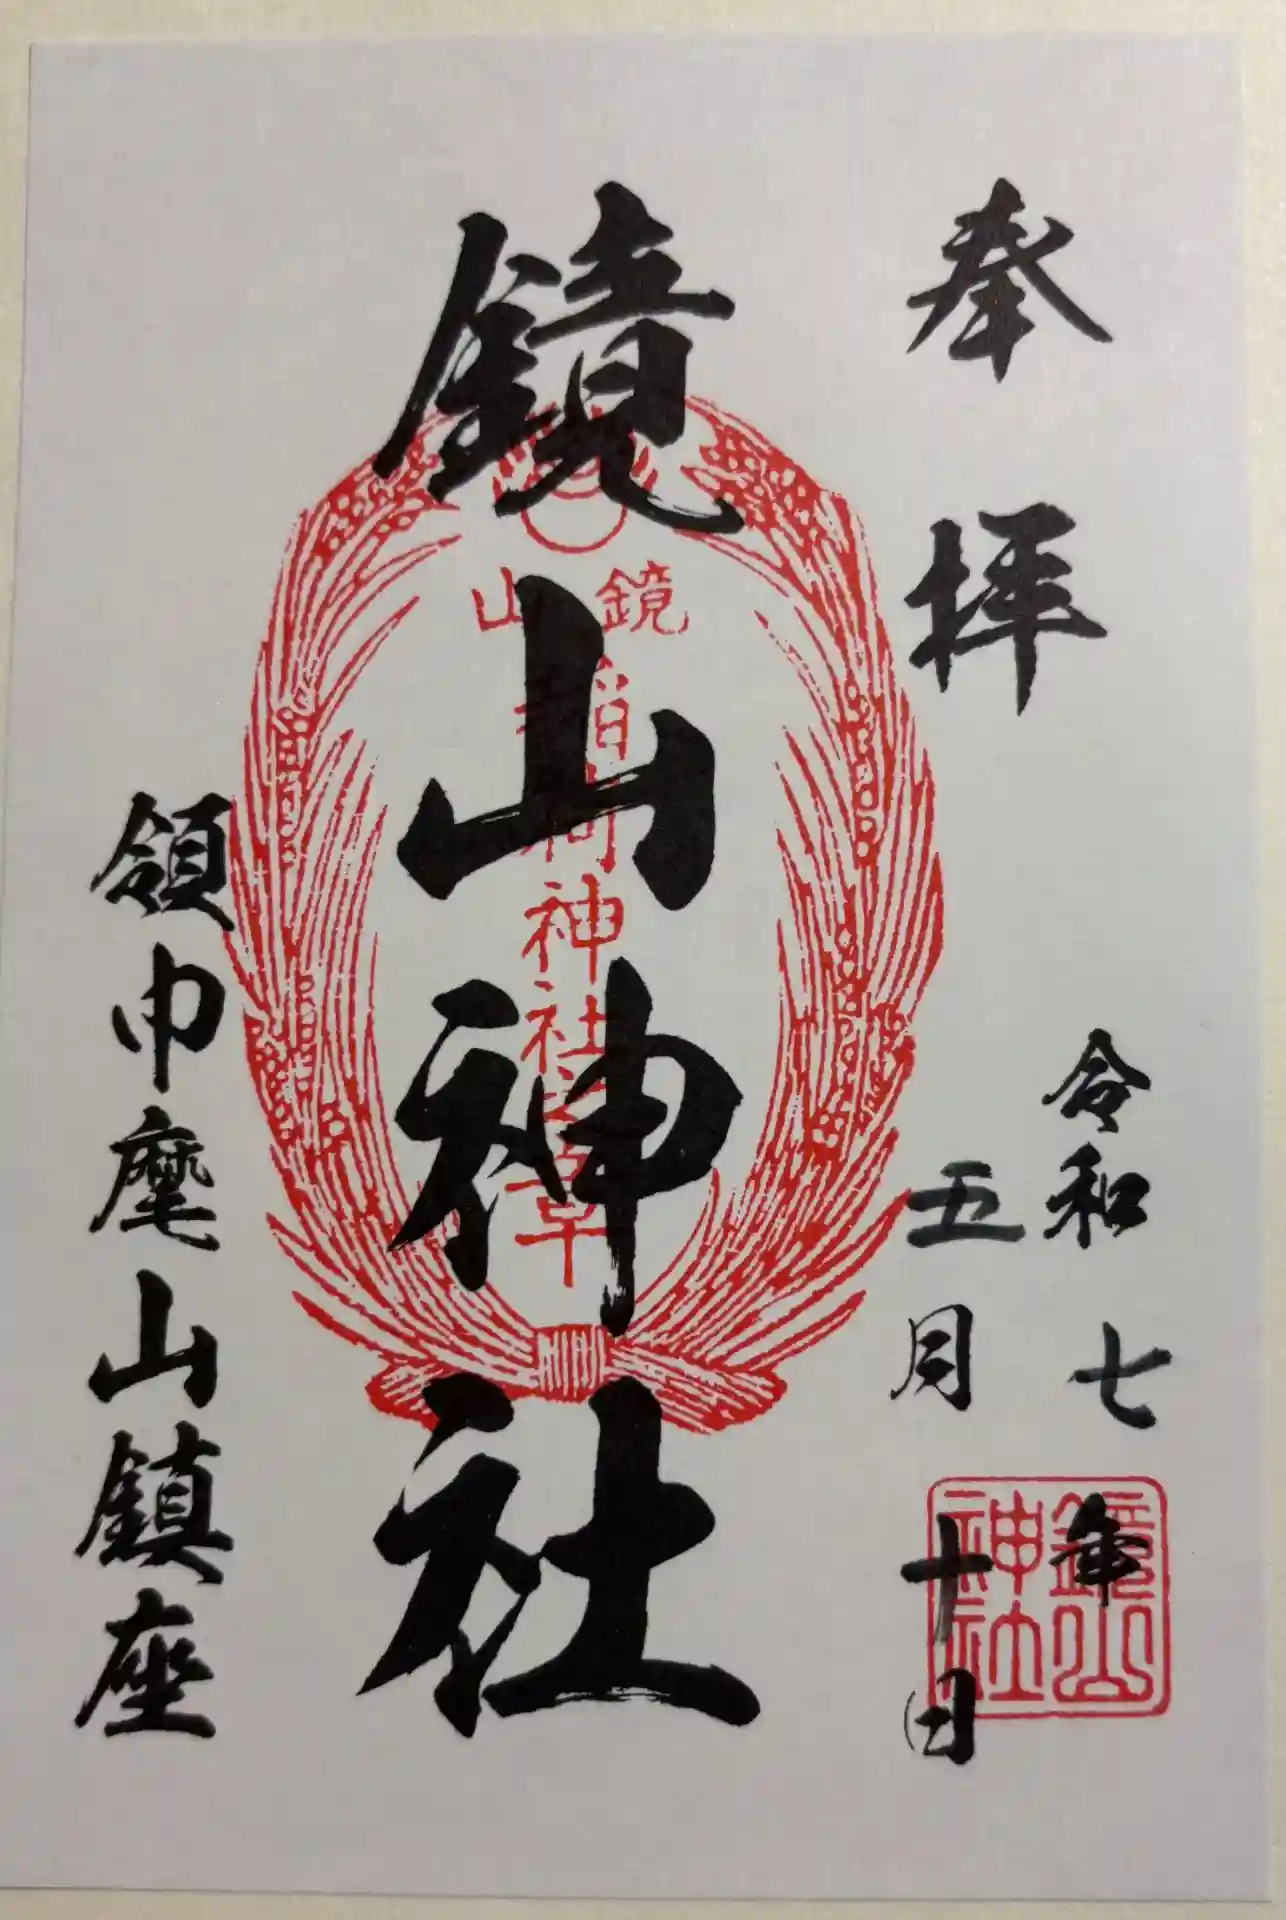 奉拝
令和七年
五月十日
鏡山神社
鏡山
稲荷神社之章
鏡山
神社
領巾麾山鎮座